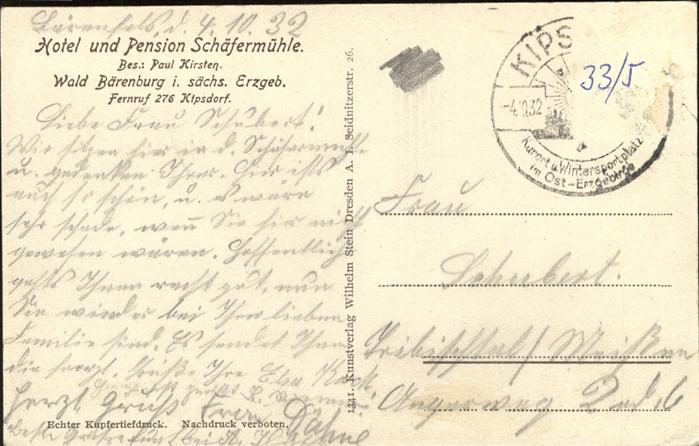 Bärenfels, d. 4.10.32
Hotel und Pension Schäfermühle.
Bes.: Paul Kirsten.
Wald Bärenburg i. sächs. Erzgeb.
Fernruf 276 Kipsdorf.
Liebe Frau Schubert!
Wir sitzen hier in d. Schäfermühle
u. gedenken Ihrer. Hier ists
auch so schön, u. es wäre
sehr schade, wenn Sie hier nicht
gewesen wären. Hoffentlich
gehts Ihnen recht gut, nun
Sie wieder bei Ihrer lieben
Familie sind. Es sendet Ihnen
die herzl. Grüße Ihre
Herzl. Gruß Frau Dähne
Echter Kupfertiefdruck. Nachdruck verboten.
1341. Kunstverlag Wilhelm Stein Dresden A. Seidnitzerstr. 26.
KIPS
-4.10.32
Kurort u. Wintersportplatz
im Ost-Erzgebirge
33/5
Frau
Schubert.
Triebischtal/Meißen